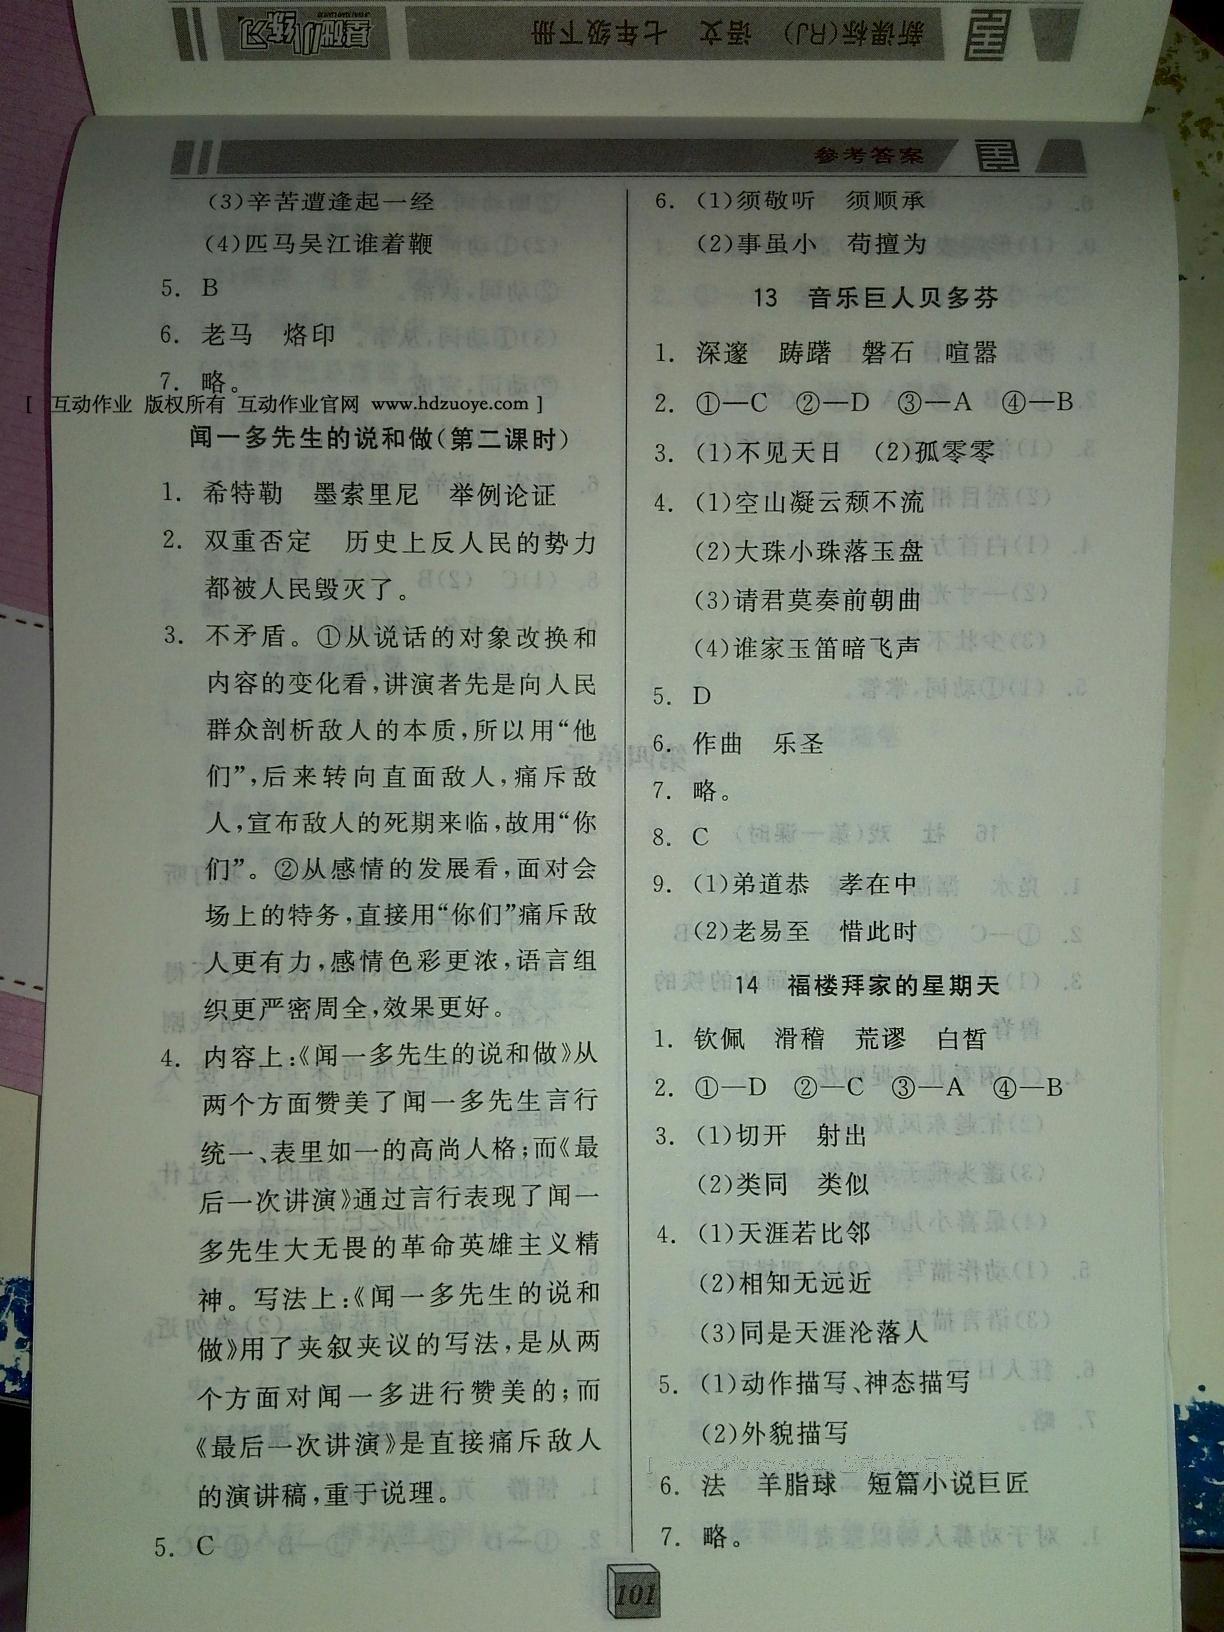 新课标(RJ) 语文 七年级下册
基础小练习
参考答案
(3)辛苦遭逢起一经
(4)匹马吴江谁着鞭
5. B
6. 老马 烙印
7. 略。
[ 互动作业 版权所有 互动作业官网 www.hdzuoye.com ]
闻一多先生的说和做(第二课时)
1. 希特勒 墨索里尼 举例论证
2. 双重否定 历史上反人民的势力
都被人民毁灭了。
3. 不矛盾。①从说话的对象改换和
内容的变化看,讲演者先是向人民
群众剖析敌人的本质,所以用“他
们”,后来转向直面敌人,痛斥敌
人,宣布敌人的死期来临,故用“你
们”。②从感情的发展看,面对会
场上的特务,直接用“你们”痛斥敌
人更有力,感情色彩更浓,语言组
织更严密周全,效果更好。
4. 内容上:《闻一多先生的说和做》从
两个方面赞美了闻一多先生言行
统一、表里如一的高尚人格;而《最
后一次讲演》通过言行表现了闻一
多先生大无畏的革命英雄主义精
神。写法上:《闻一多先生的说和
做》用了夹叙夹议的写法,是从两
个方面对闻一多进行赞美的;而
《最后一次讲演》是直接痛斥敌人
的演讲稿,重于说理。
5. C
6. (1)须敬听 须顺承
(2)事虽小 苟擅为
13 音乐巨人贝多芬
1. 深邃 踌躇 磐石 喧嚣
2. ①—C ②—D ③—A ④—B
3. (1)不见天日 (2)孤零零
4. (1)空山凝云颓不流
(2)大珠小珠落玉盘
(3)请君莫奏前朝曲
(4)谁家玉笛暗飞声
5. D
6. 作曲 乐圣
7. 略。
8. C
9. (1)弟道恭 孝在中
(2)老易至 惜此时
14 福楼拜家的星期天
1. 钦佩 滑稽 荒谬 白皙
2. ①—D ②—C ③—A ④—B
3. (1)切开 射出
(2)类同 类似
4. (1)天涯若比邻
(2)相知无远近
(3)同是天涯沦落人
5. (1)动作描写、神态描写
(2)外貌描写
6. 法 羊脂球 短篇小说巨匠
7. 略。
101